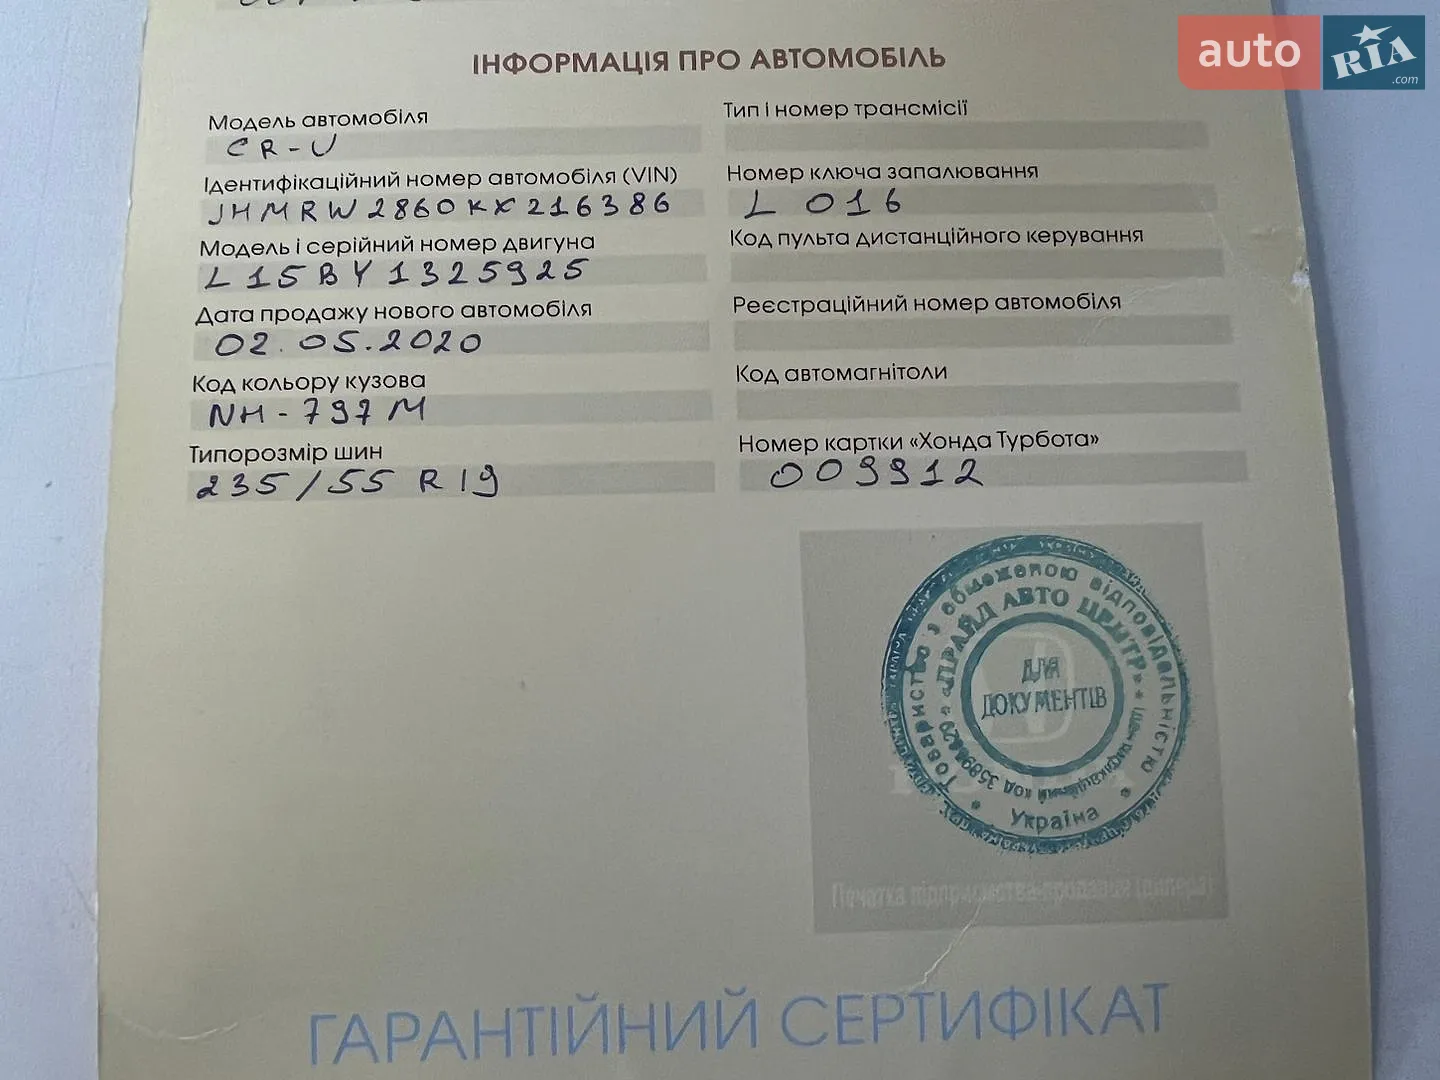 auto RIA.com
ІНФОРМАЦІЯ ПРО АВТОМОБІЛЬ
Модель автомобіля
CR-V
Ідентифікаційний номер автомобіля (VIN)
JHMRW2860KX216386
Модель і серійний номер двигуна
L15BY1325925
Дата продажу нового автомобіля
02.05.2020
Код кольору кузова
NH-797M
Типорозмір шин
235/55 R19
Тип і номер трансмісії
Номер ключа запалювання
L 016
Код пульта дистанційного керування
Реєстраційний номер автомобіля
Код автомагнітоли
Номер картки «Хонда Турбота»
009912
Товариство з обмеженою відповідальністю
«ПРАЙД АВТО ЦЕНТР»
ДЛЯ
ДОКУМЕНТІВ
Україна
Печатка підприємства-продавця (дилера)
ГАРАНТІЙНИЙ СЕРТИФІКАТ